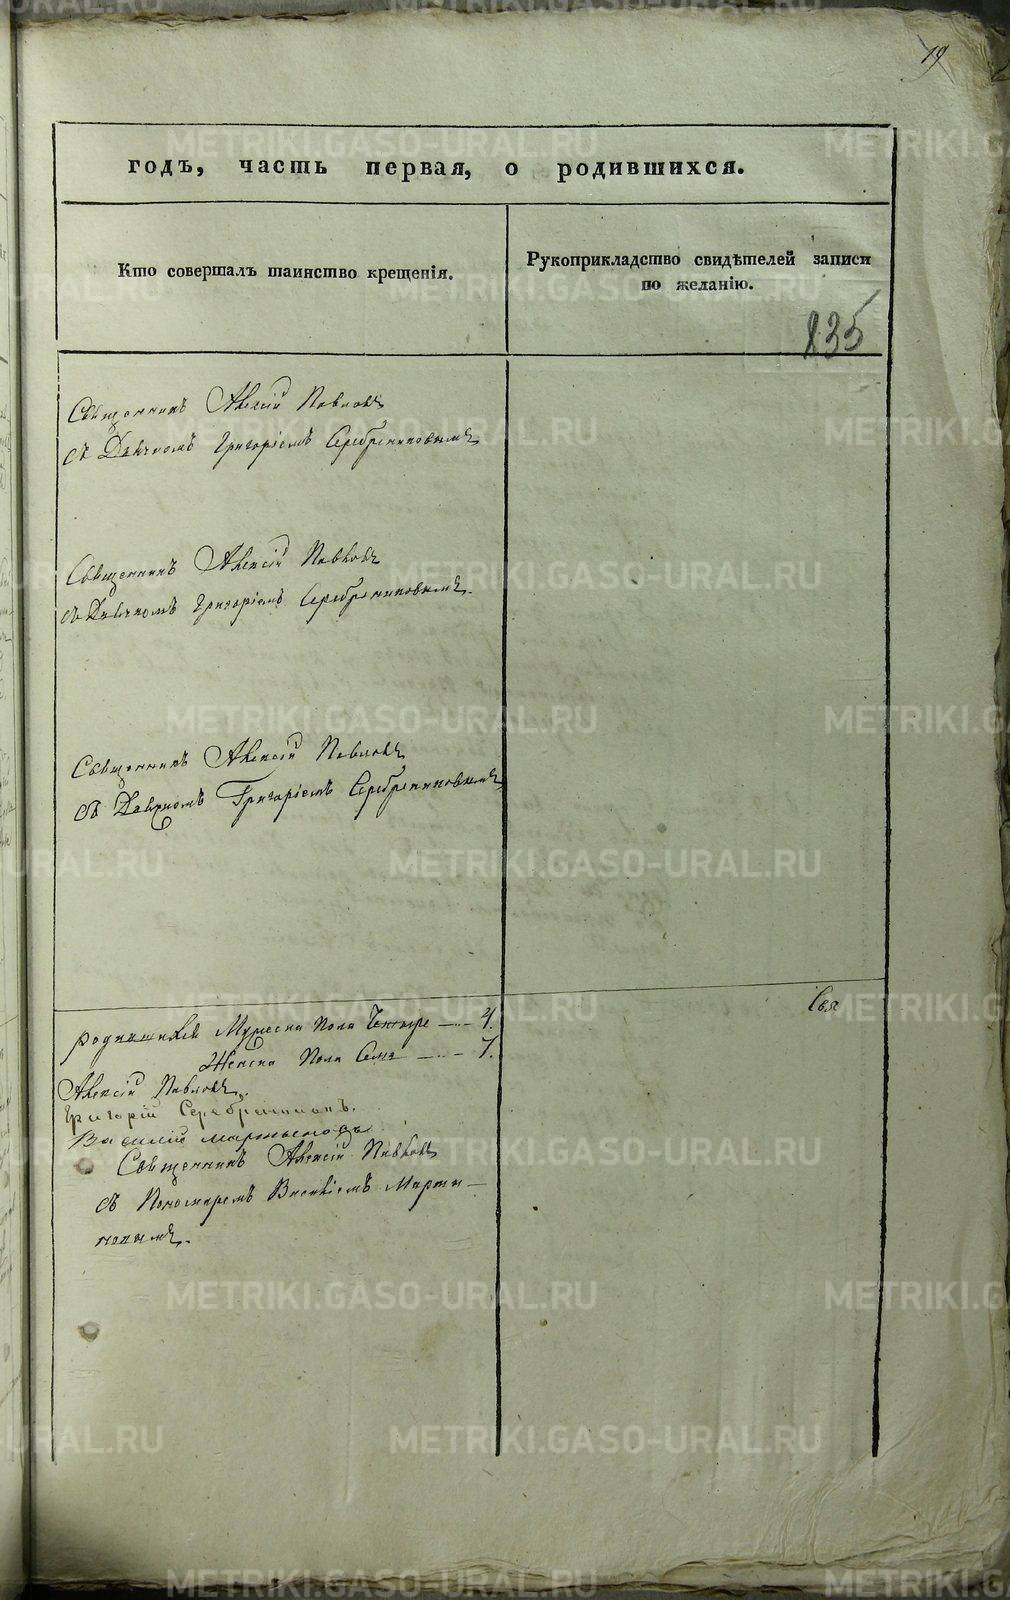 19
годъ, часть первая, о родившихся.
Кто совершалъ таинство крещенія.
Рукоприкладство свидѣтелей записи
по желанію.
835
Священникъ Алексій Павловъ
съ Дьячкомъ Григоріемъ Серебрениковымъ
Священникъ Алексій Павловъ
съ Дьячкомъ Григоріемъ Серебрениковымъ.
Священникъ Алексій Павловъ
съ Дьячкомъ Григоріемъ Серебрениковымъ
родившихся Мужеска пола Четыре — 4.
Женска пола Семь — 7.
Алексій Павловъ.
Григорій Серебрениковъ.
Василій Мартыновъ
Священникъ Алексій Павловъ
съ Пономаремъ Василіемъ Марты-
новымъ.
Свя
METRIKI.GASO-URAL.RU